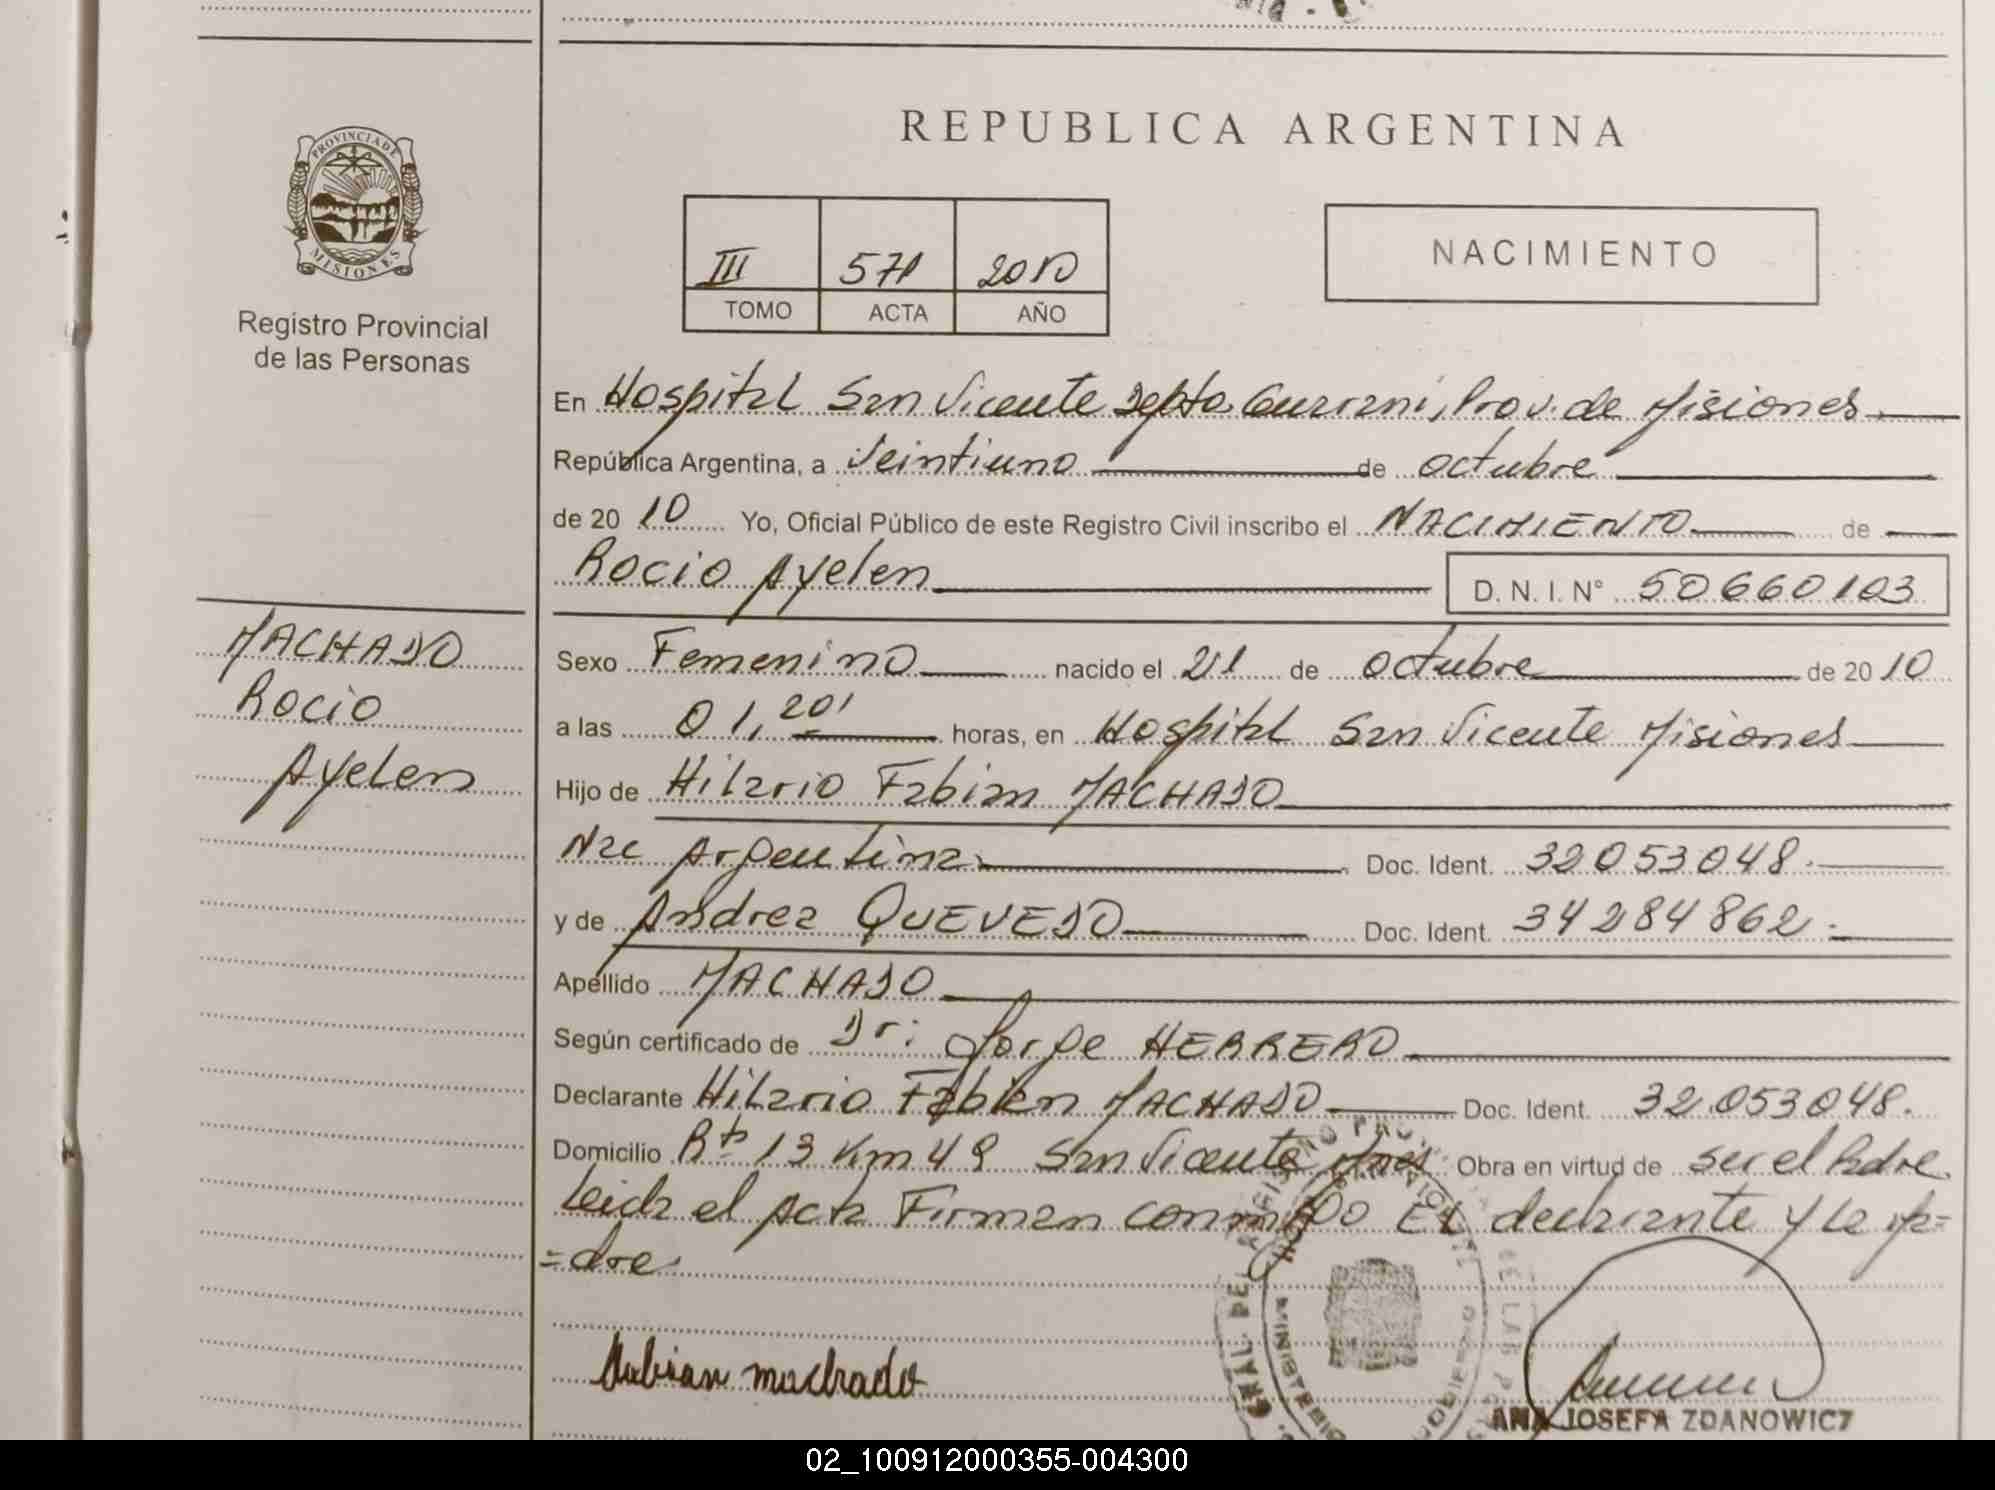 REPUBLICA ARGENTINA
PROVINCIA DE
MISIONES
Registro Provincial
de las Personas
III 571 2010
TOMO ACTA AÑO
NACIMIENTO
En Hospital San Vicente Depto. Guarani, Prov. de Misiones
República Argentina, a Veintiuno de octubre
de 20 10 Yo, Oficial Público de este Registro Civil inscribo el NACIMIENTO de
Rocio Ayelen
D. N. I. N° 50660103
MACHADO
Rocio
Ayelen
Sexo Femenino nacido el 21 de octubre de 20 10
a las 01,20' horas, en Hospital San Vicente Misiones
Hijo de Hilario Fabian MACHADO
Nac Argentina Doc. Ident. 32053048.
y de Andrea QUEVEDO Doc. Ident. 34284862.
Apellido MACHADO
Según certificado de Dr: Jorge HERRERO
Declarante Hilario Fabian MACHADO Doc. Ident. 32.053048.
Domicilio Rta 13 Km 49 San Vicente Mnes Obra en virtud de ser el Padre
Leida el Acta Firman conmigo El declarante y la Ma=
=dre
Fabian machado
ANA JOSEFA ZDANOWICZ
02_100912000355-004300